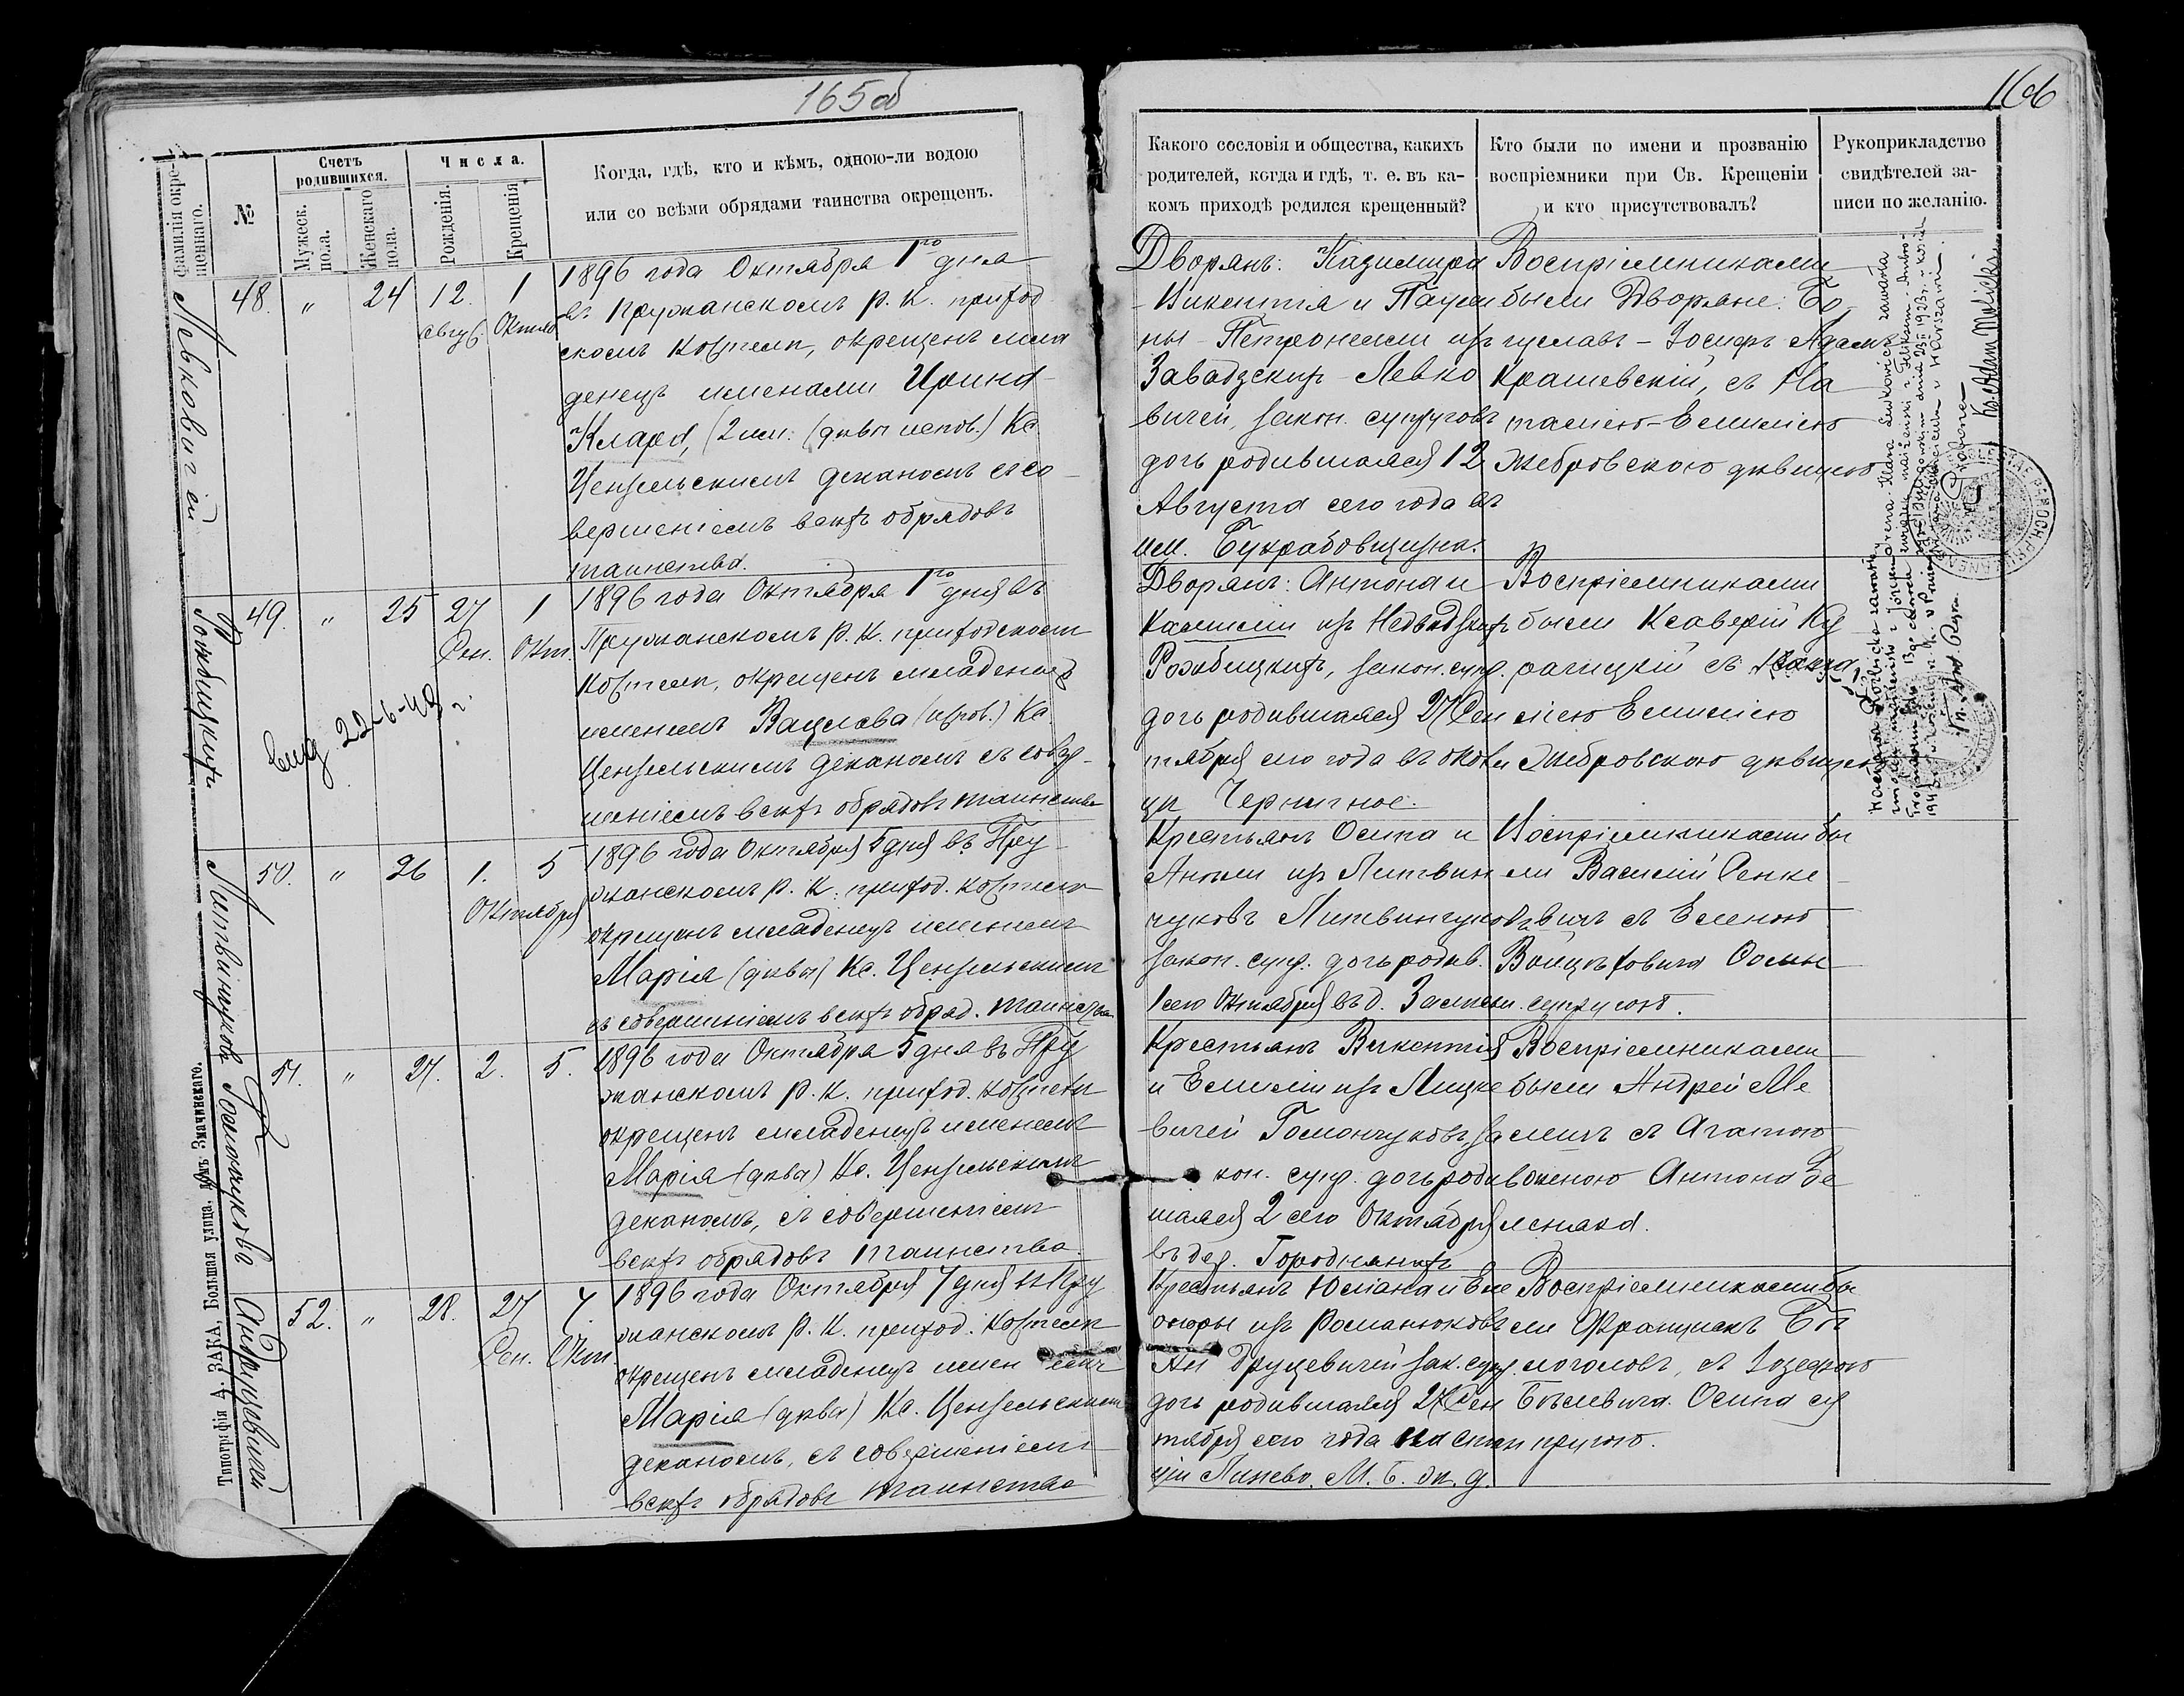 165об
166
Фамилія окре-
щеннаго.
№
Счетъ
родившихся.
Мужеск.
пола.
Женскаго
пола.
Числа.
Рожденія.
Крещенія
Когда, гдѣ, кто и кѣмъ, одною-ли водою
или со всѣми обрядами таинства окрещенъ.
Какого сословія и общества, какихъ
родителей, когда и гдѣ, т. е. въ ка-
комъ приходѣ родился крещенный?
Кто были по имени и прозванію
воспріемники при Св. Крещеніи
и кто присутствовалъ?
Рукоприкладство
свидѣтелей за-
писи по желанію.
Левковичей
48. " 24 12. 1
Авгус. Октяб
1896 года Октября 1го дня
въ Пружанскомъ р. к. приход
скомъ костелѣ, окрещенъ мла
денецъ именами Ирина-
Клара, (2 им. (дѣвы испов.) Кс.
Цензельскимъ деканомъ съ со-
вершеніемъ всѣхъ обрядовъ
таинства.
Дворянъ: Казимира
-Викентія и Паули
ны-Петронели изъ
Завадзкихъ-Левко
вичей, закон. супруговъ
дочь родившаяся 12
Августа сего года въ
им. Бухрабовщизна.
Воспріемниками
были Дворяне: Бо-
гуславъ-Іосифъ Адамъ
Крашевскій, съ На
таліею-Емиліею
Жебровскою дѣвицею
Рожбицкихъ
49. " 25 27 1
Сен. Окт.
выд 22-6-49 г.
1896 года Октября 1го дня въ
Пружанскомъ р. к. приходскомъ
костелѣ, окрещенъ младенецъ
именемъ Вацлава (испов.) Кс.
Цензельскимъ деканомъ съ совер-
шеніемъ всѣхъ обрядовъ таинства
Дворянъ: Антона и
Камиліи изъ Недведзкихъ
Рожбицкихъ, закон. супр.
дочь родившаяся 27 Сен
тября сего года въ околи
цѣ Черничное.
Воспріемниками
были Ксаверій Ку
рачицкій съ
ліею Емиліею
Жебровскою дѣвицею
Литвинчуковъ
50. " 26 1. 5
Октября
1896 года Октября 5 дня въ Пру-
жанскомъ р. к. приход. костелѣ
окрещенъ младенецъ именемъ
Марія (дѣвы) Кс. Цензельскимъ
съ совершеніемъ всѣхъ обряд. таинства
Крестьянъ Осипа и
Анели изъ Литвин
чуковъ Литвинчуковъ
закон. супр. дочь родив.
1 сего Октября въ д.
Воспріемниками бы
ли Василій Сенке
вичъ съ Еленою
Войцѣховича Осипа
супругою.
Гомончуковъ
51. " 27. 2. 5.
1896 года Октября 5 дня въ Пру
жанскомъ р. к. приход. костелѣ
окрещенъ младенецъ именемъ
Марія (дѣвы) Кс. Цензельскимъ
деканомъ, съ совершеніемъ
всѣхъ обрядовъ таинства.
Крестьянъ Викентія
и Емиліи изъ Лицке
вичей Гомончуковъ, за
кон. супр. дочь роди
шаяся 2 сего Октября
въ дер. Городнянахъ
Воспріемниками
были Андрей Ме
съ Агатою
женою Антона Зе
леняка.
Андрушевичей
52. " 28. 27 7.
Сен. Окт.
1896 года Октября 7 дня въ Пру
жанскомъ р. к. приход. костелѣ
окрещенъ младенецъ именемъ
Марія (дѣвы) Кс. Цензельскимъ
деканомъ, съ совершеніемъ
всѣхъ обрядовъ таинства
Крестьянъ Юліана и Еле
оноры изъ Романюковъ
зак. супр.
дочь родившаяся 27 Сен
тября сего года на стан
ціи Линево. М. Б. ж. д.
Воспріемниками бы
ли Францискъ Бѣ
логоловъ, съ Іозефою
Бѣлевича Осипа су
пругою.
Ks. Adam Malicki
Типографія А. ЗАКА, Большая улица, домъ Значинскаго.